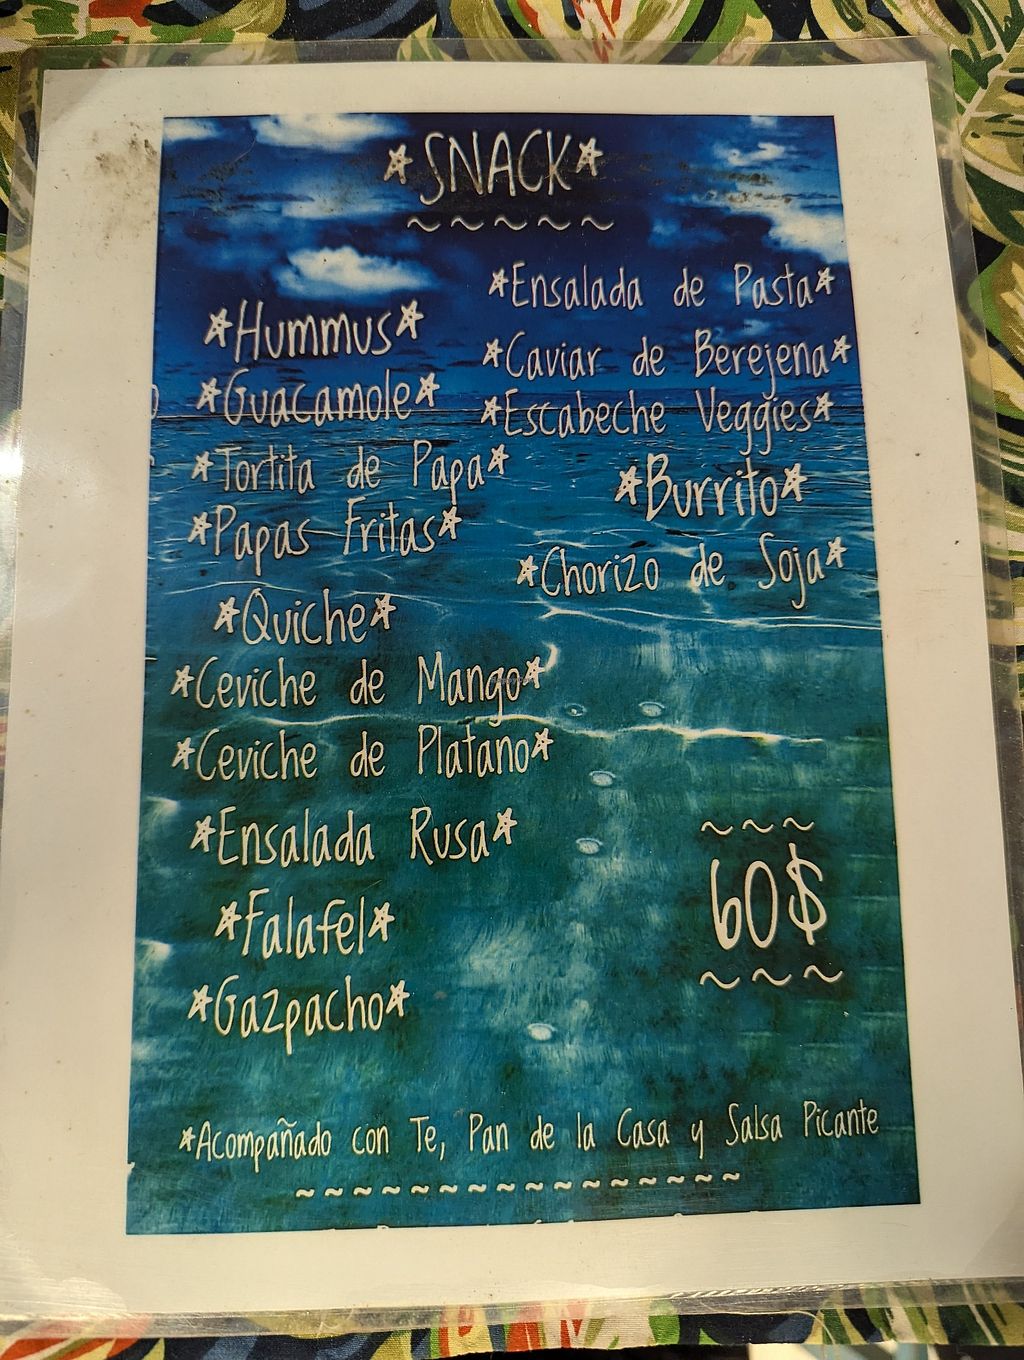 *SNACK*
~~~~~
*Hummus*
*Guacamole*
*Tortita de Papa*
*Papas Fritas*
*Quiche*
*Ceviche de Mango*
*Ceviche de Platano*
*Ensalada Rusa*
*Falafel*
*Gazpacho*
*Ensalada de Pasta*
*Caviar de Berejena*
*Escabeche Veggies*
*Burrito*
*Chorizo de Soja*
~~~
60$
~~~
*Acompañado con Te, Pan de la Casa y Salsa Picante
~~~~~~~~~~~~~~~~